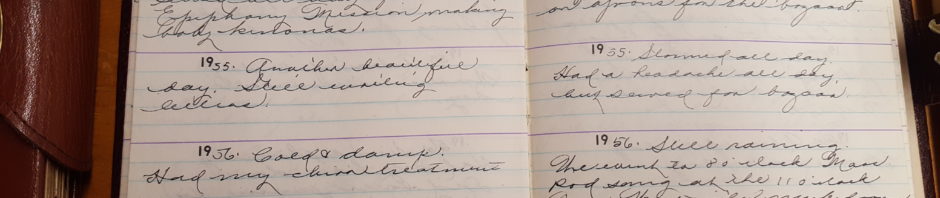 Epiphany Mission, making
baby kimonas.
1955. Another beautiful
day. Still writing
letters.
1956. Cold & damp.
Had my chiro treatment
on aprons for the bazaar.
1955. Stormed all day.
Had a headache all day,
but sewed for bazaar.
1956. Still raining.
We went to 8 o'clock Mass
Rod sang at the 11 o'clock